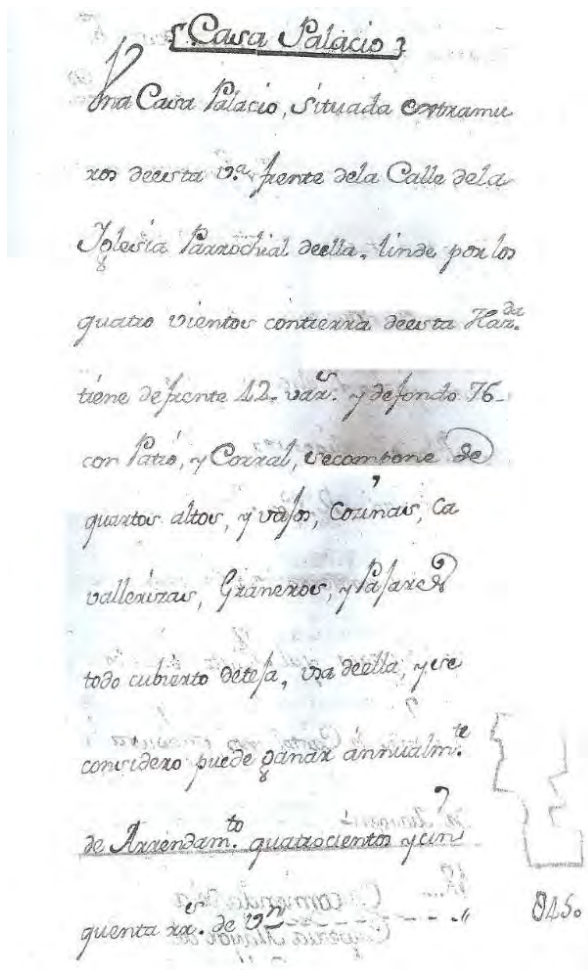 {Casa Palacio}
Una Casa Palacio, situada extramu
ros deesta v.ª frente dela Calle dela
Iglesia Parrochial deella. linde por los
quatro vientos contierra deesta Haz.da
tiene defrente 42. var.s y defondo 76
con Patio, y Corral, secompone de
quartos altos, y vajos, Cocinas, Ca
vallerizas, Graneros, y Pajares
todo cubierto deteja, usa deella, y se
considero puede ganar annualm.te
de Arrendam.to quatrocientos y cin
quenta rr.s de v.n